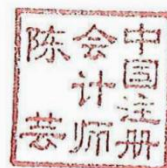 中国注册
会计师
陈芸